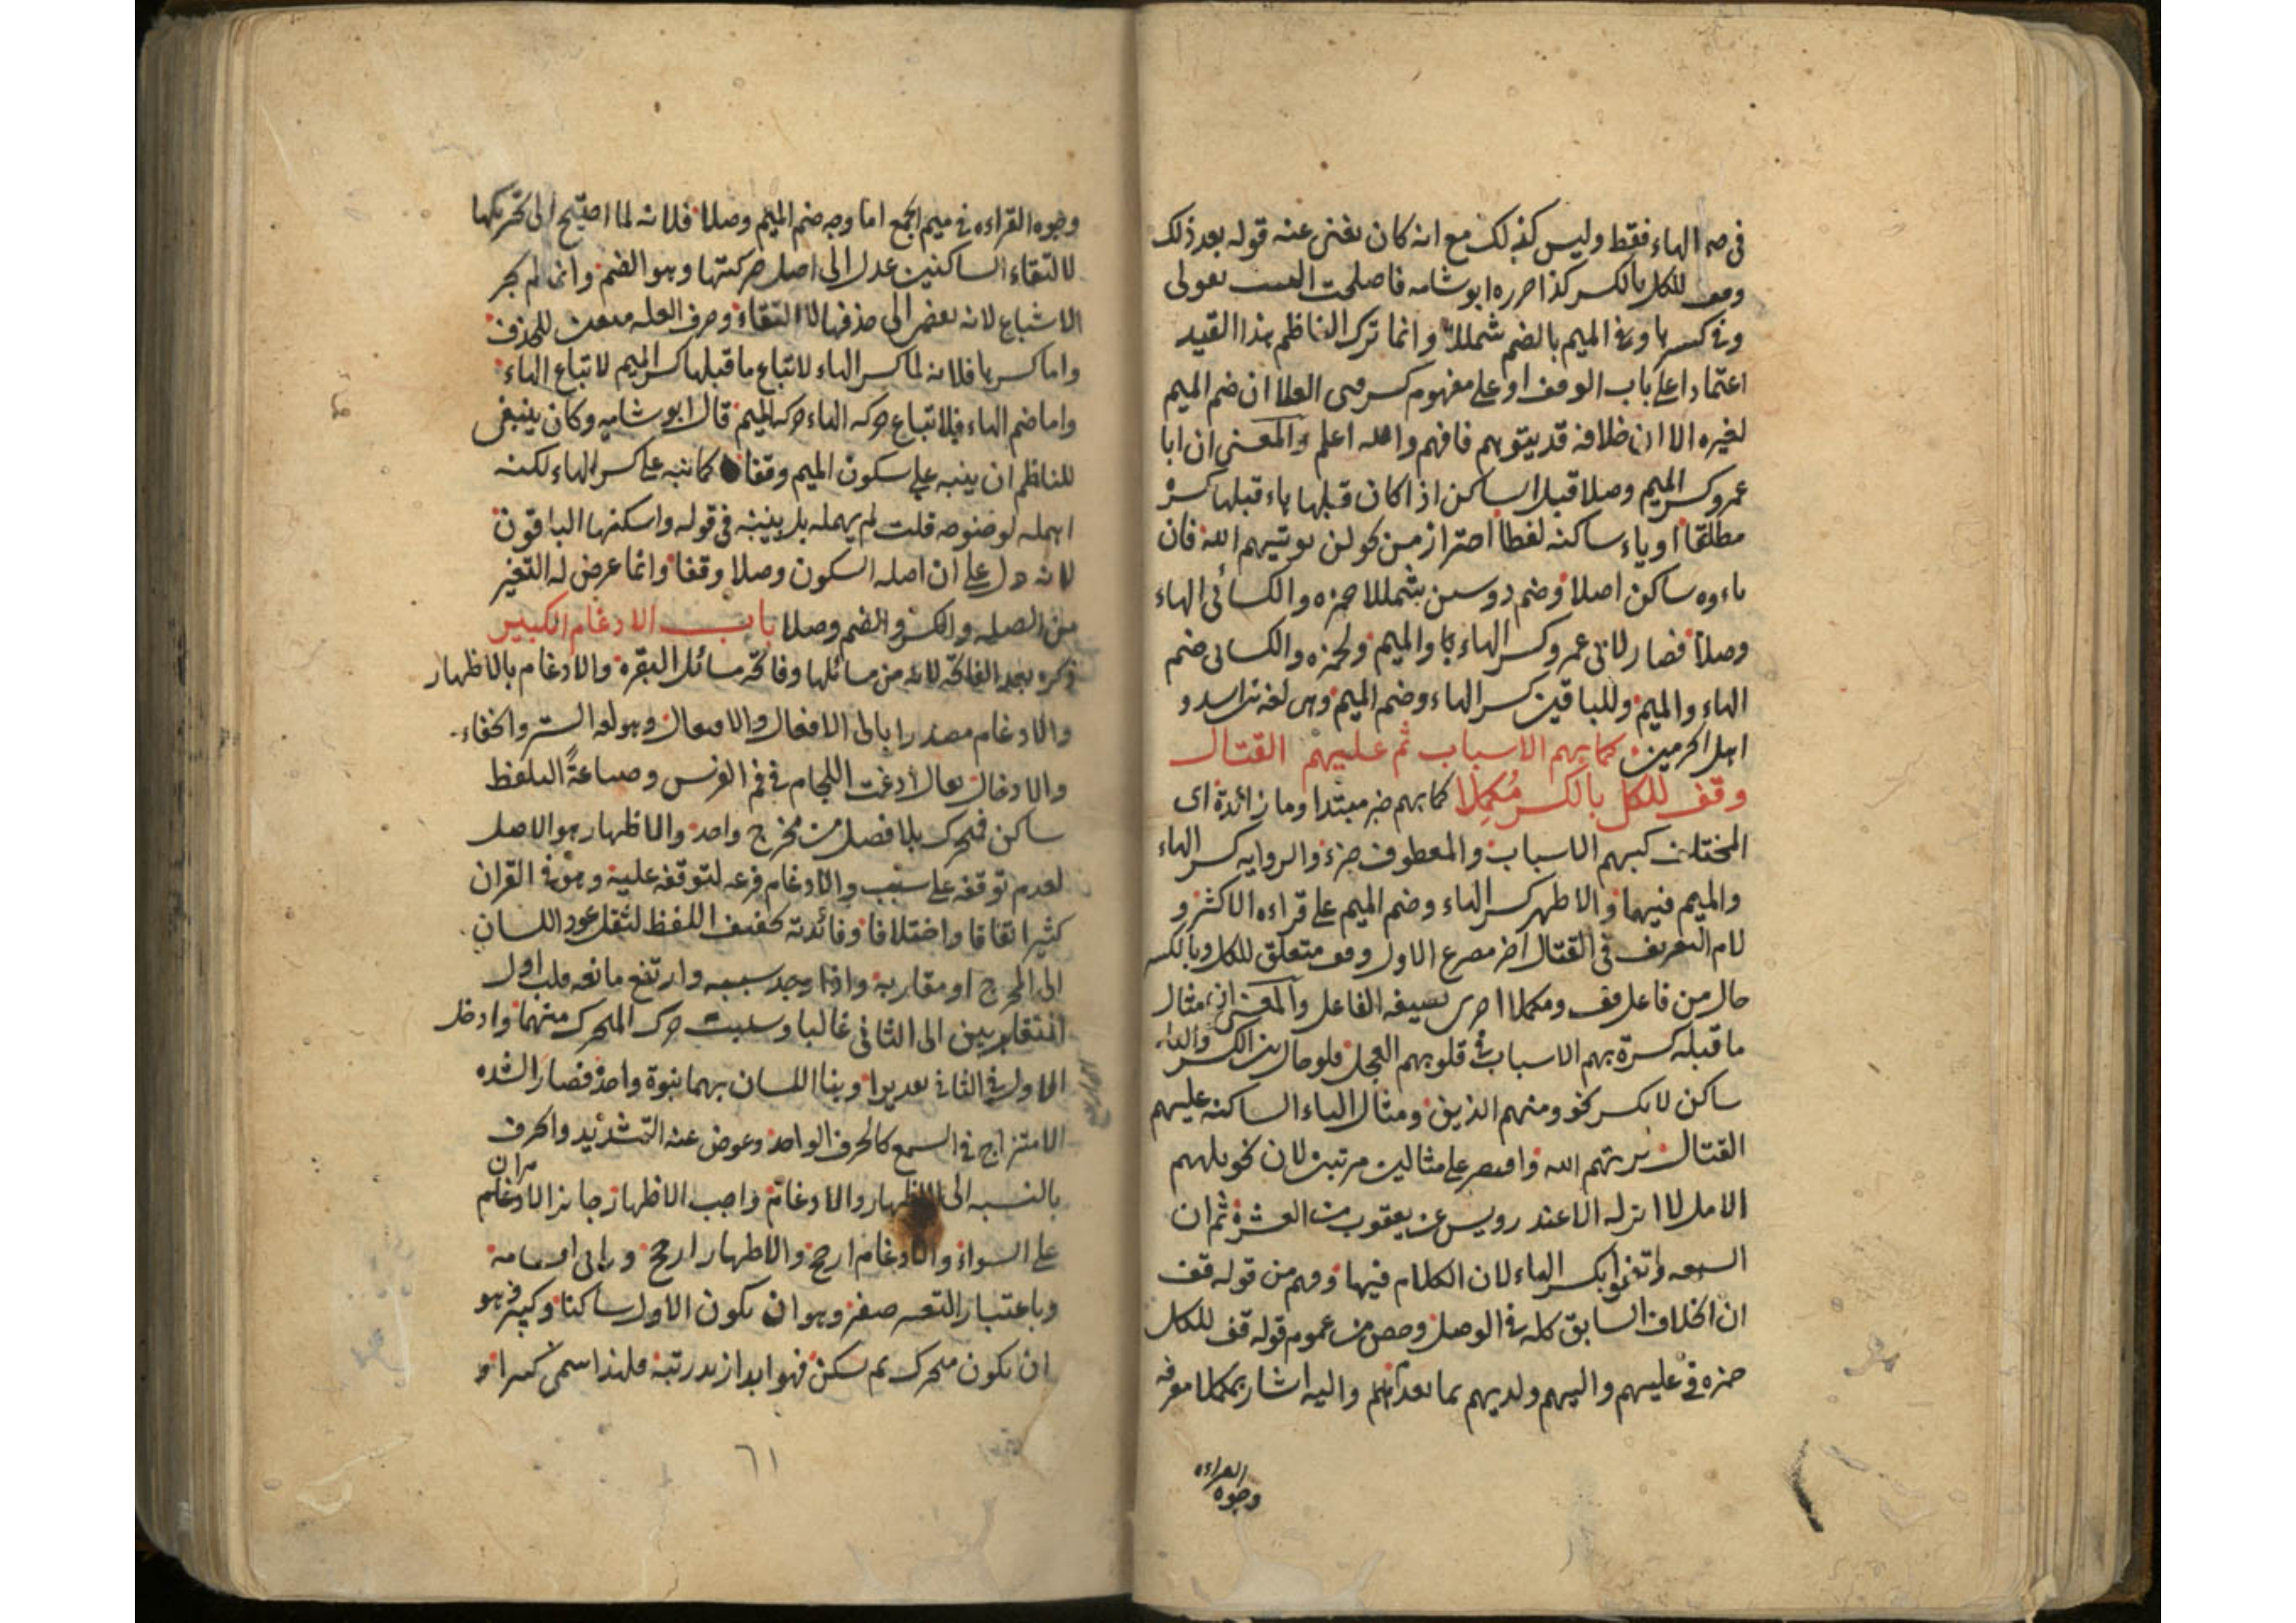 في ضم الهاء فقط وليس كذلك مع انه كان يغنى عنه قوله بعد ذلك
وقف للكل بالكسر كذا حرره ابو شامه فاصلحت البيت بقولى
وفي كسرها وفي الميم بالضم شمللا وانما ترك الناظم هذا القيد
اعتمادا على باب الوقف او على مفهوم كسر فتى العلا ان ضم الميم
لغيره الا ان خلافه قد يتوهم فافهم والله اعلم والمعنى ان ابا
عمرو كسر الميم وصلا قبل الساكن اذا كان قبلها هاء قبلها كسرة
مطلقا او ياء ساكنة لفظا احتراز من نحو لن يوتيهم الله فان
هاءوه ساكن اصلا وضم دوسين بشمللا حمزه والكسائى الهاء
وصلا فصار لابى عمرو كسر الهاء والميم ولحمزه والكسائى ضم
الهاء والميم وللباقين كسر الهاء وضم الميم وهى لغة بنى اسد و
اهل الحرمين كما بهم الاسباب ثم عليهم القتال
وقف للكل بالكسر مكملا كما بهم خبر مبتدا وما زائدة اى
المختلف كبهم الاسباب والمعطوف جزء والروايه كسر الهاء
والميم فيهما والاظهر كسر الهاء وضم الميم على قراءه الاكثر و
لام التعريف في القتال اخر مصرع الاول وقف متعلق للكل وبالكسر
حال من فاعل قف ومكملا اخرى بصيغه الفاعل والمعنى ان مثال
ما قبله كسرة بهم الاسباب في قلوبهم العجل فلو حال بين الكسر والهاء
ساكن لا بكسر نحو ومنهم الذين ومثال الياء الساكنه عليهم
القتال يريهم الله واقتصر على مثالين مرتبين لان نحو يلههم
الامل لا انزله الا عند رويس عن يعقوب من العشرة ثم ان
السبعه اتفقوا بكسر الهاء لان الكلام فيها وفهم من قوله قف
ان الخلاف السابق كله في الوصل وخص من عموم قوله قف للكل
حمزه في عليهم واليهم ولديهم بما تقدم لهم واليه اشار بمكملا معرفه
وجوه القراءه
وجوه القراءه في ميم الجمع اما وجه ضم الميم وصلا فلانه لما احتيج الى تحريكها
لالتقاء الساكنين عدل الى اصل حركتها وهو الضم وانما لم يجر
الاشباع لانه يفضى الى حذفها لالتقاء وحرف العله للحذف
واما كسرها فلانه لما كسر الهاء لاتباع ما قبلها كسر الميم لاتباع الهاء
واما ضم الهاء فلاتباع حركه الهاء حركه الميم قال ابو شامه وكان ينبغى
للناظم ان ينبه على سكون الميم وقفا كما نبه على كسر الهاء لكنه
اهمله لوضوحه قلت لم يهمله بل بينه في قوله واسكنها الباقون
لانه دل على ان اصله السكون وصلا وقفا وانما عرض له التغير
من الصله والكسر والضم وصلا باب الادغام الكبير
ذكره بعد الفاتحه لانه من مسائلها وفاتحه مسائل البقره والادغام بالاظهار
والادغام مصدر ا بابى الافعال والافتعال وهو لغه الستر والخفاء
والادخال يقال ادغمت اللجام في فم الفرس وصناعةً التلفظ
ساكن فمتحرك بلا فصل من مخرج واحد والاظهار هو الاصل
لعدم توقفه على سبب والادغام فرعه لتوقفه عليه وهو في القران
كثير اتفاقا واختلافا وفائدته تخفيف اللفظ لثقل عود اللسان
الى المخرج او مقاربه واذا وجد سببه وارتفع مانعه قلب اول
المتقاربين الى الثانى غالبا وسلبت حرك المتحرك منهما وادخل
الاول في الثانى تقديرا وبنا اللسان بهما نبوة واحدة فصار الشده
الامتزاج في السمع كالحرف الواحد وعوض عنه التشديد والحرف
بالنسبه الى الاظهار والادغام واجب الاظهار جايز الادغام
على السواء والادغام ارجح والاظهار ارجح وياتى اقسامه
وباعتبار التغيير صغير وهو ان يكون الاول ساكنا وكبير وهو
ان يكون متحرك ثم سكن فهو ابدا ازيد رتبة فلهذا سمى كبيرا و
٦١